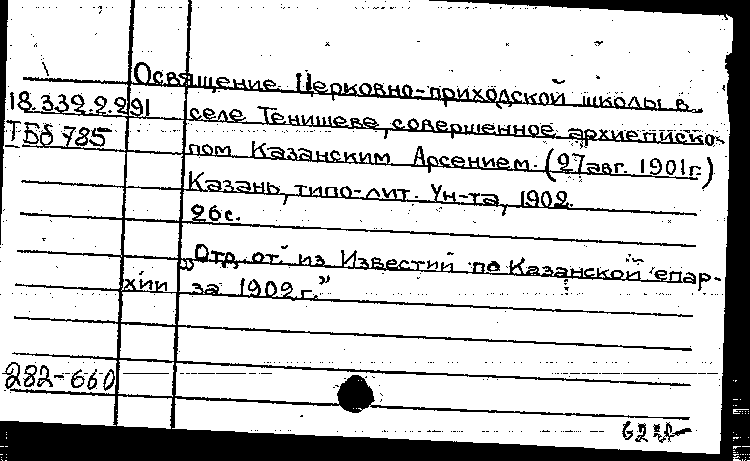 Освящение Церковно-приходской школы в
18.332.2.291 селе Тенишеве, совершенное архиеписко-
ТБб 785 пом Казанским Арсением. (27 авг. 1901г.)
Казань, типо-лит. Ун-та, 1902.
26с.
„Отд. от. из Известий по Казанской епар-
хии за 1902г."
282-660